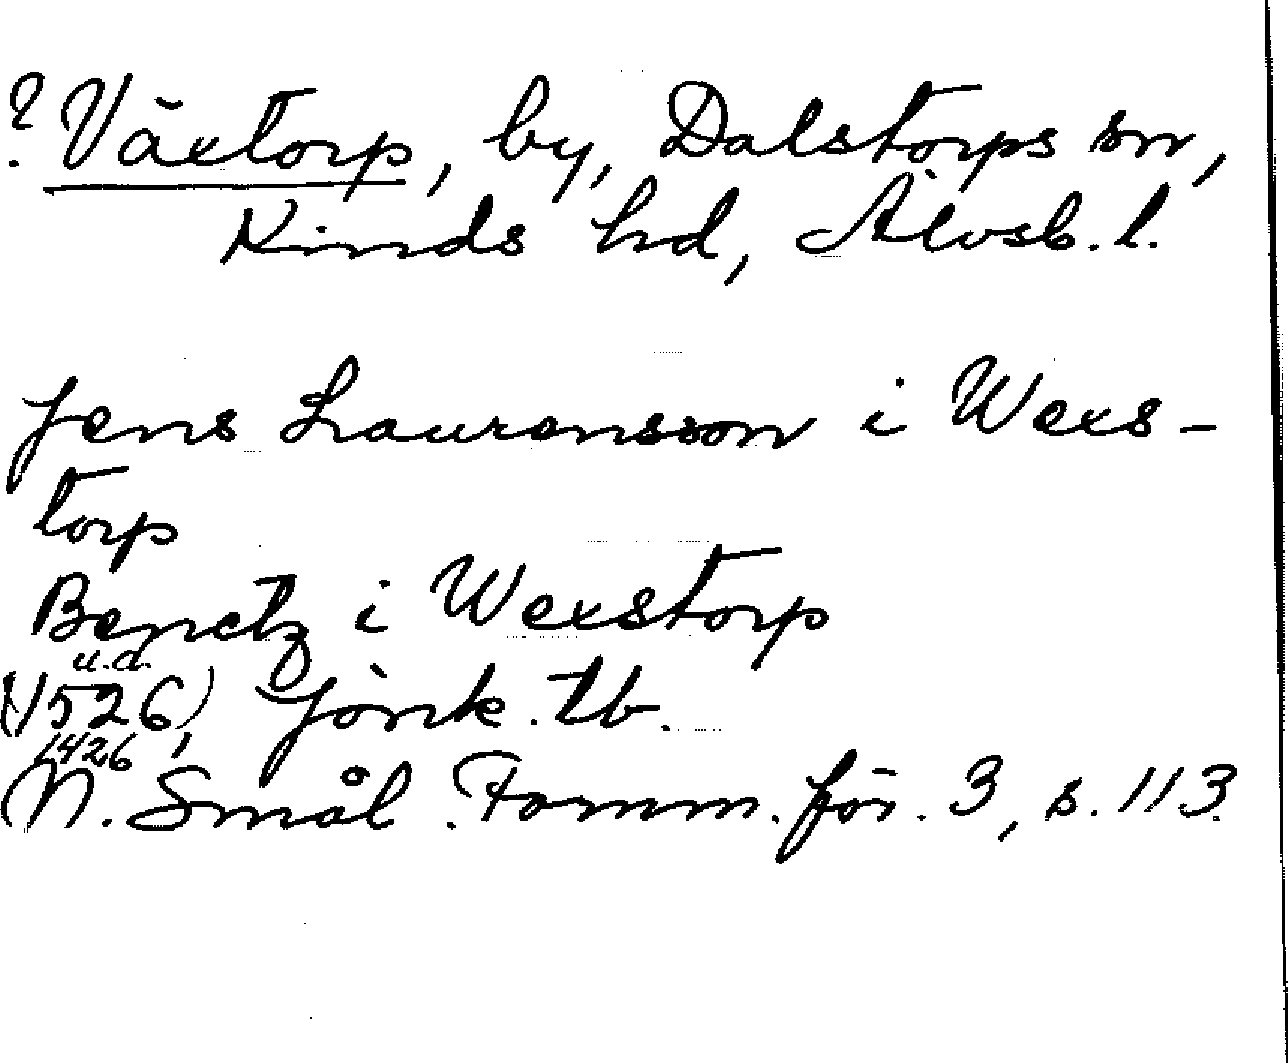 ? Växtorp, by, Dalstorps sn,
Kinds hd, Älvsb. l.
Jens Lauransson i Wexs-
torp
Benctz i Wexstorp
u.d.
(1526), Jönk. tb.
1426
N. Smål. Fornm. för. 3, s. 113.